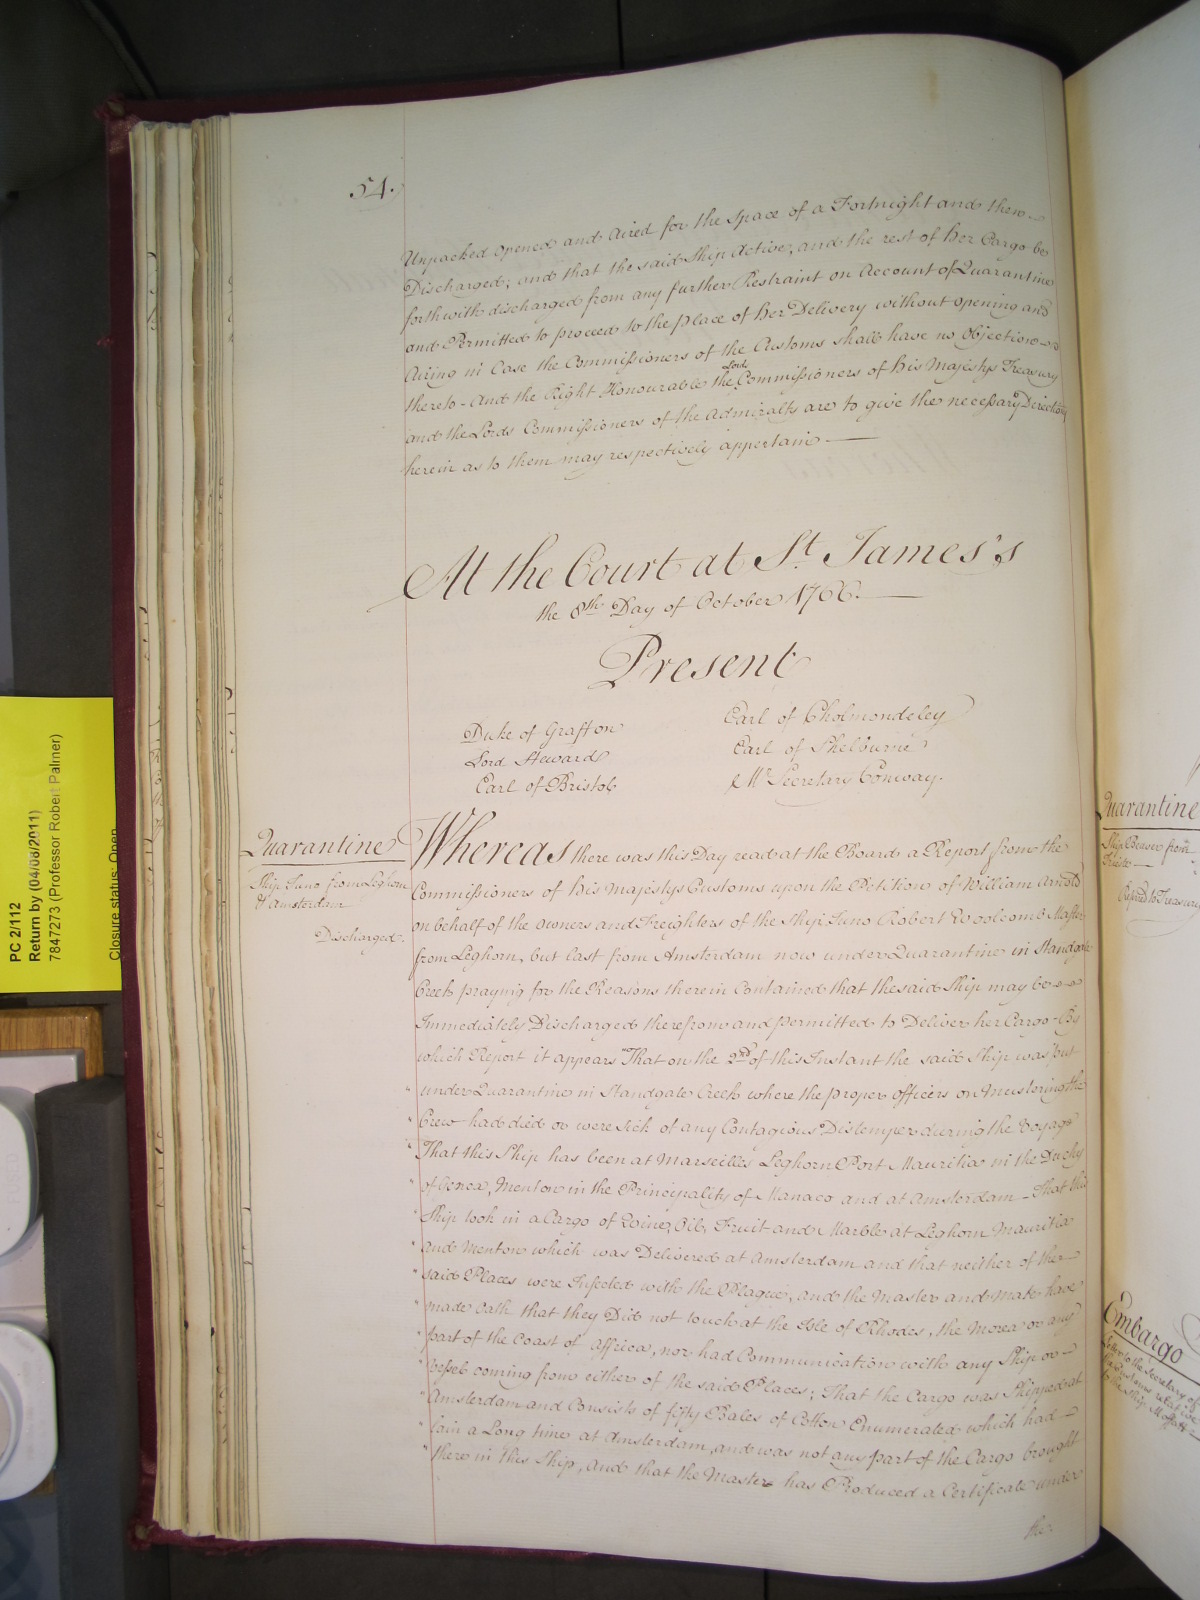 54.
Unpacked opened and Aired for the Space of a Fortnight and then
Discharged; and that the said Ship Active, and the rest of Her Cargo be
forthwith discharged from any further Restraint on Account of Quarantine
and Permitted to proceed to the place of Her Delivery without opening and
Airing in Case the Commissioners of the Customs shall have no Objection
thereto - And the Right Honourable the Lords Commissioners of His Majestys Treasury
and the Lords Commissioners of the Admiralty are to give the necessary Directions
herein as to them may respectively appertain
At the Court at St. James's
the 8th Day of October 1766.
Present
Duke of Grafton
Lord Steward
Earl of Bristol
Earl of Cholmondeley
Earl of Shelburne
Mr Secretary Conway.
Quarantine
Ship Juno from Leghorn
& Amsterdam
Discharged.
Whereas there was this Day read at the Board a Report from the
Commissioners of His Majestys Customs upon the Petition of William Arnold
on behalf of the Owners and Freighters of the Ship Juno Robert Woolcomb Master
from Leghorn, but last from Amsterdam now under Quarantine in Standgate
Creek praying for the Reasons therein Contained that the said Ship may be
Immediately Discharged therefrom and permitted to Deliver her Cargo - By
which Report it appears "That on the 2nd of this Instant the said Ship was put
" under Quarantine in Standgate Creek where the proper Officers on Mustering the
" Crew had died or were sick of any Contagious Distemper during the Voyage
" That this Ship has been at Marseilles Leghorn Port Mauritia in the Duchy
" of Genoa, Menton in the Principality of Manaco and at Amsterdam - That this
" Ship took in a Cargo of Wine, Oil, Fruit and Marble at Leghorn Mauritia
" and Menton which was Delivered at Amsterdam and that neither of the
" said Places were Infected with the Plague, and the Master and Mate have
" made Oath that they Did not touch at the Isle of Rhodes, the Morea or any
" part of the Coast of Affrica, nor had Communication with any Ship or
" vessel coming from either of the said Places; That the Cargo was Shipped at
" Amsterdam and Consists of fifty Bales of Cotton Enumerated which had
" lain a Long time at Amsterdam, and was not any part of the Cargo brought
" there in this Ship, and that the Master has Produced a Certificate under
the
Quarantine
Ship Beaver from
Trieste
Refered to Treasury
Embargo
Letter to the Secretary of
the Customs relative
to the Ship
PC 2/112
Return by (04/08/2011)
7847273 (Professor Robert Palmer)
Closure status: Open